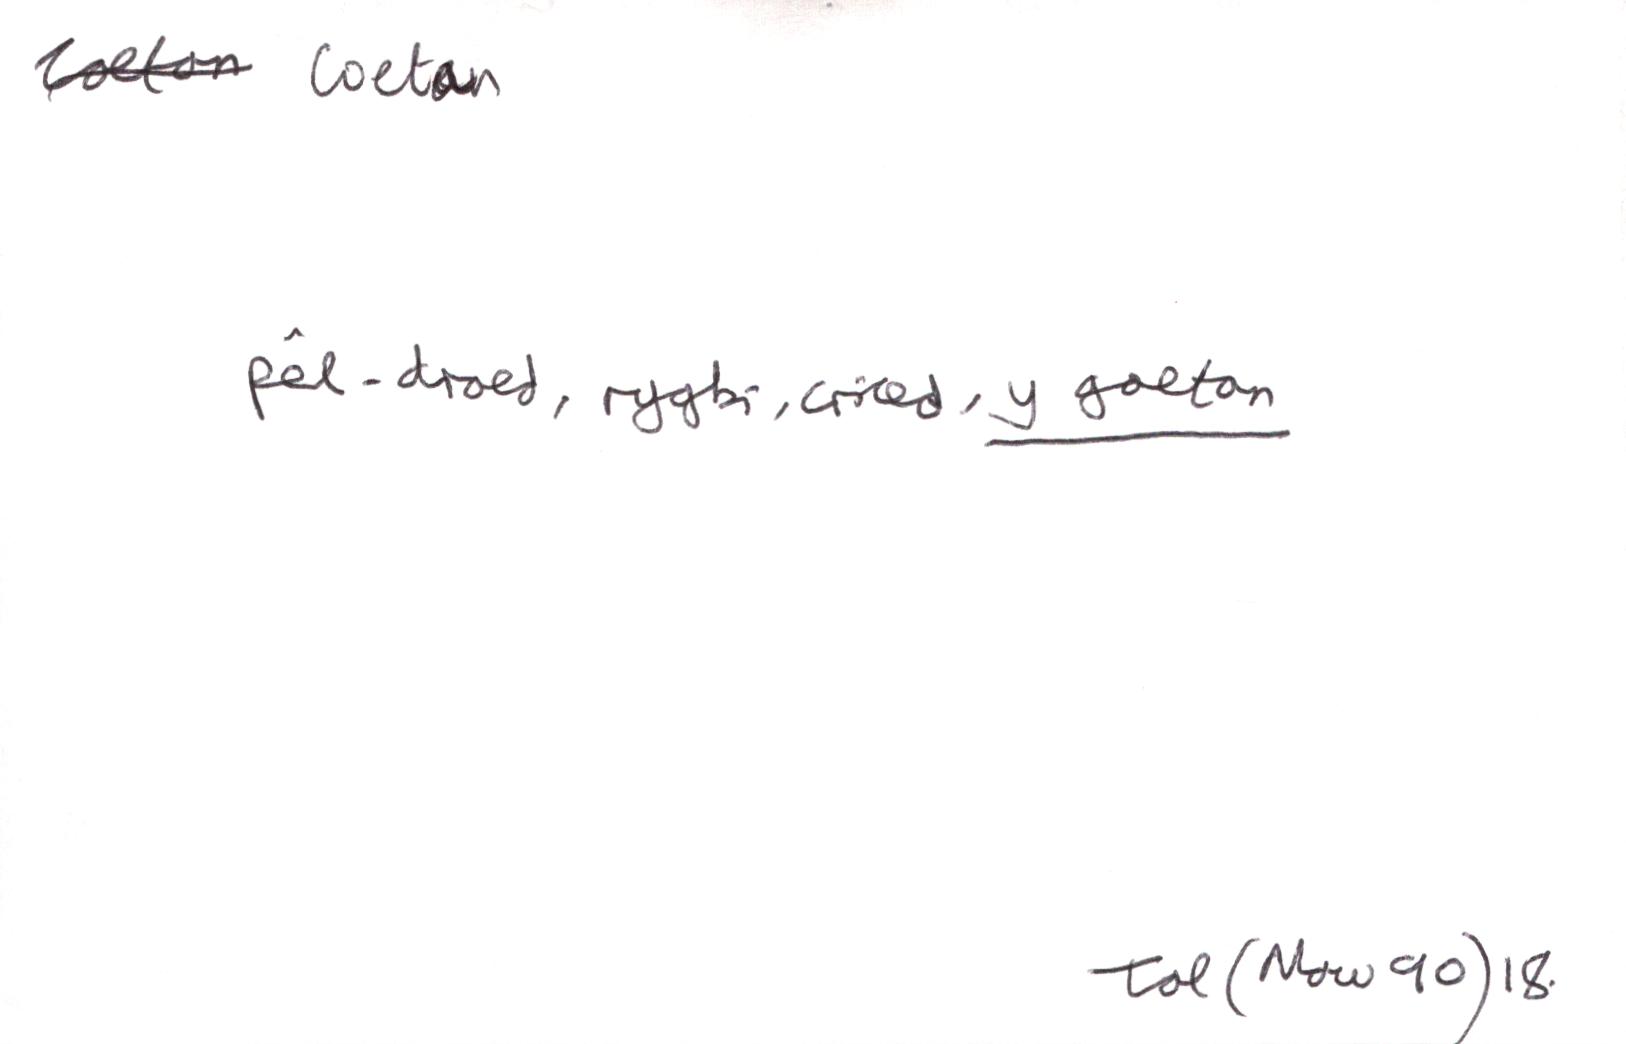 Coetan Coetan
pêl-droed, rygbi, criced, y goetan
Tol (Maw 90) 18.